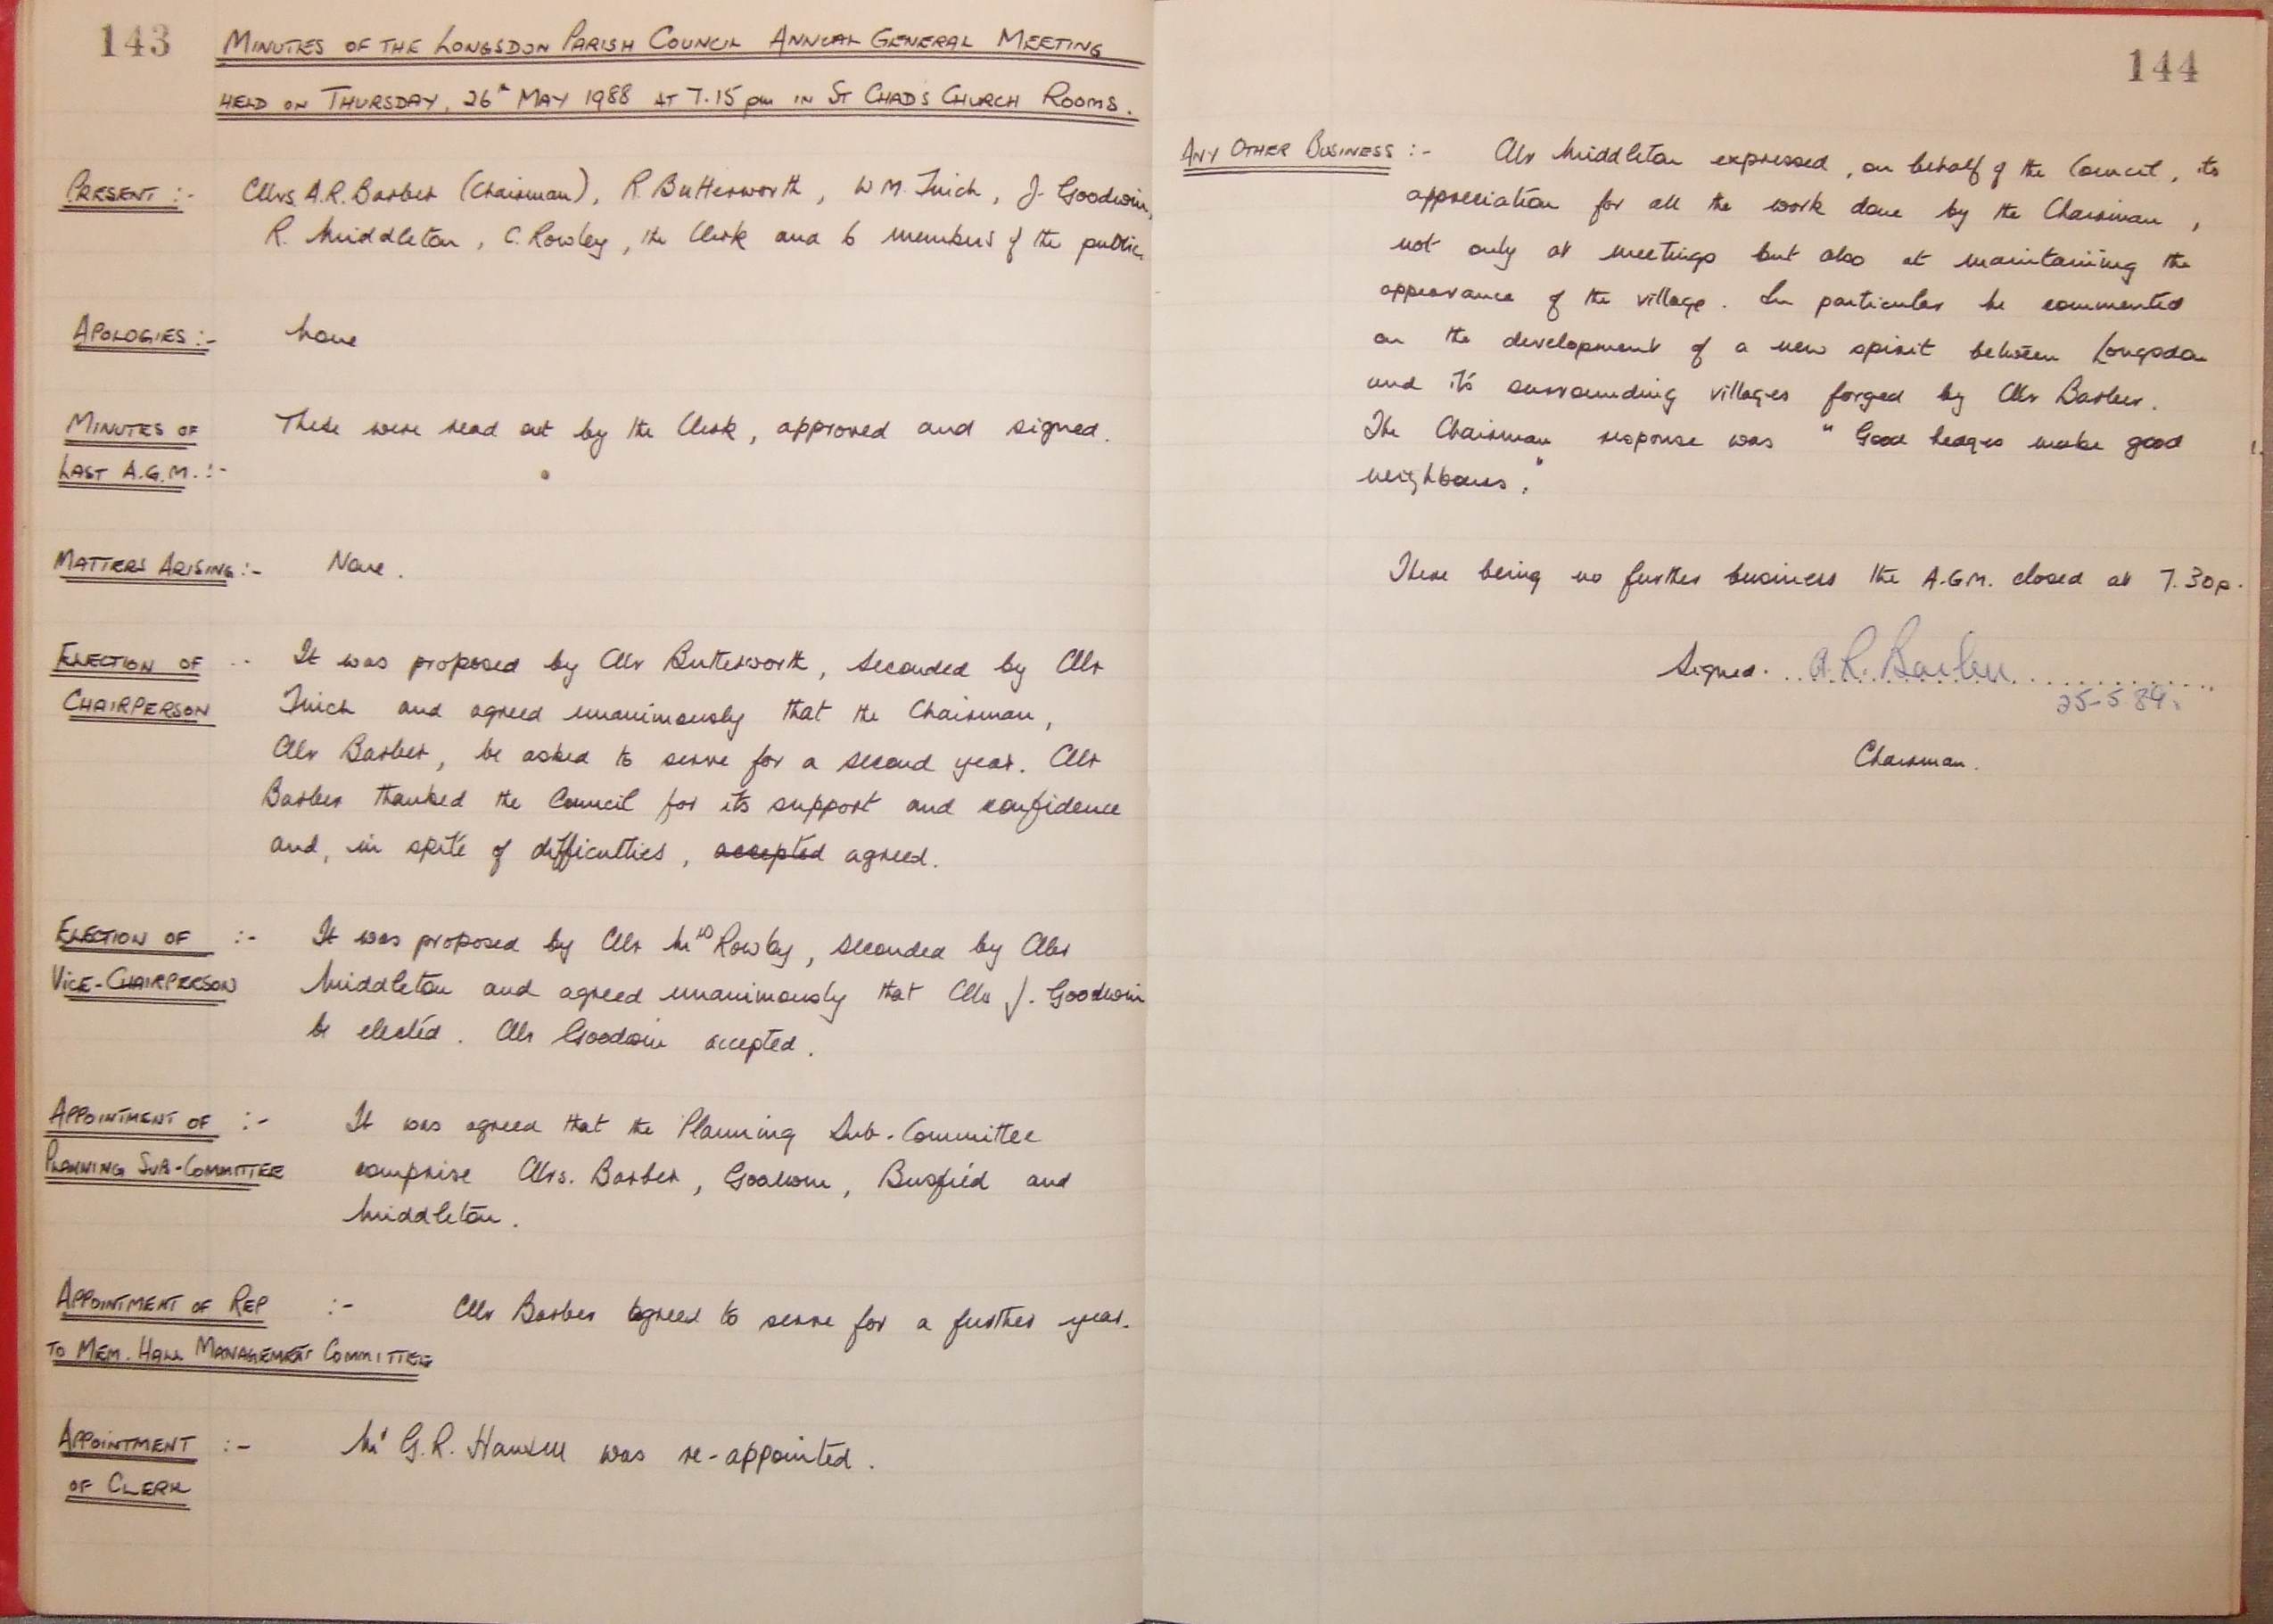 143
MINUTES OF THE LONGSDON PARISH COUNCIL ANNUAL GENERAL MEETING
HELD ON THURSDAY, 26th MAY 1988 AT 7.15 pm IN ST CHADS CHURCH ROOMS.
PRESENT :- Cllrs. A.R. Barber (Chairman), R. Butterworth, W M. Finch, J. Goodwin,
R. Middleton, C. Rowley, the Clerk and 6 members of the public.
APOLOGIES :- None
MINUTES OF These were read out by the Clerk, approved and signed.
LAST A.G.M. :-
MATTERS ARISING :- None.
ELECTION OF .. It was proposed by Cllr Butterworth, seconded by Cllr
CHAIRPERSON Finch and agreed unanimously that the Chairman,
Cllr Barber, be asked to serve for a second year. Cllr
Barber thanked the Council for its support and confidence
and, in spite of difficulties, accepted agreed.
ELECTION OF :- It was proposed by Cllr Mrs Rowley, seconded by Cllr
VICE-CHAIRPERSON Middleton and agreed unanimously that Cllr J. Goodwin
be elected. Cllr Goodwin accepted.
APPOINTMENT OF :- It was agreed that the Planning Sub-Committee
PLANNING SUB-COMMITTEE comprise Cllrs. Barber, Goodwin, Busfield and
Middleton.
APPOINTMENT OF REP :- Cllr Barber agreed to serve for a further year.
TO MEM. HALL MANAGEMENT COMMITTEE
APPOINTMENT :- Mr G.R. was re-appointed.
OF CLERK
144
ANY OTHER BUSINESS :- Cllr Middleton expressed, on behalf of the Council, its
appreciation for all the work done by the Chairman,
not only at meetings but also at maintaining the
appearance of the village. In particular he commented
on the development of a new spirit between Longsdon
and it's surrounding villages forged by Cllr Barber.
The Chairman response was "Good hedges make good
neighbours."
There being no further business the A.G.M. closed at 7.30p.
Signed. A. R. Barber
25-5 89.
Chairman.